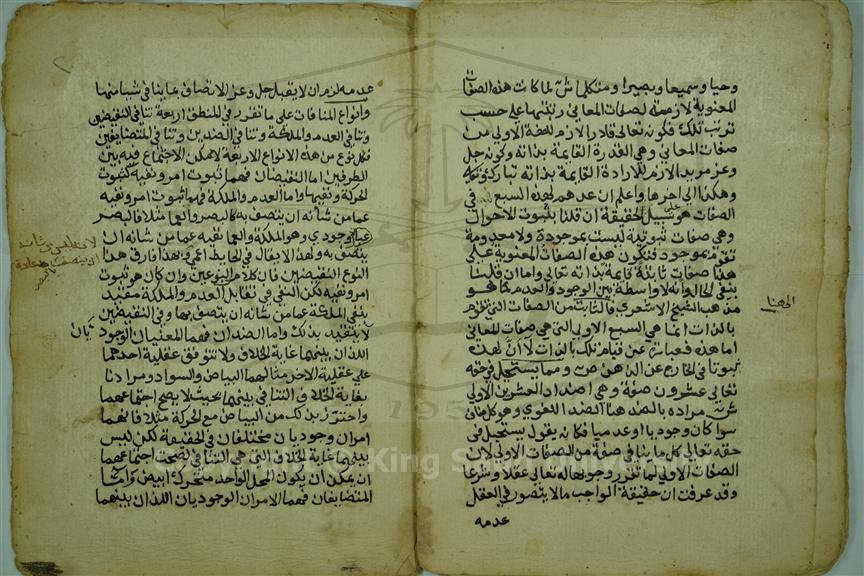 وحيا وسميعا وبصيرا ومتكلما ش لما كانت هذه الصفات
المعنوية لازمة لصفات المعاني رتبها على حسب
ترتيب تلك فكونه تعالى قادرا لازم للصفة الاولى من
صفات المعاني وهي القدرة القايمة بذاته وكونه جل
وعز مريدا لازم للارادة القايمة بذاته تبارك وتعالى
وهكذا الى اخرها واعلم ان عدهم لهذه السبع في
الصفات هو على سبيل الحقيقة ان قلنا بثبوت الاحوال
وهي صفات ثبوتية ليست بموجودة ولا معدومة
تقوم بموجود فتكون هذه الصفات المعنوية على
هذا صفات ثابتة قايمة بذاته تعالى واما ان قلنا
بنفي الحال وانه لا واسطة بين الوجود والعدم كما هو
مذهب الشيخ الاشعري فالثابت من الصفات التي تقوم
بالذات انما هي السبع الاولى التي هي صفات المعاني
اما هذه فعبارة عن قيام تلك بالذات لا ان لهذه
ثبوتا في الخارج عن الذهن ص ومما يستحيل في حقه
تعالى عشرون صفة وهي اضداد العشرين الاولى
ش مراده بالضد هنا الضد اللغوي وهو كل مناف
سوا كان وجوديا او عدميا فكانه يقول يستحيل في
حقه تعالى كل ما ينافي صفة من الصفات الاولى لان
الصفات الاولى لما تقرر وجوبها له تعالى عقلا وشرعا
وقد عرفت ان حقيقة الواجب ما لا يتصور في العقل
عدمه
الى هنا
عدمه لزم ان لا يقبل جل وعز الاتصاف بما ينافي شيا منها
وانواع المنافات على ما تقرر في المنطق اربعة تنافي النقيضين
وتنافي العدم والملكة وتنافي الضدين وتنافي المتضايفين
فكل نوع من هذه الانواع الاربعة لا يمكن الاجتماع فيه بين
الطرفين اما النقيضان فهما ثبوت امر ونفيه كثبوت
الحركة ونفيها واما العدم والملكة فهما ثبوت امر ونفيه
عما من شانه ان يتصف به كالبصر والعما مثلا فالبصر
وجودي وهو الملكة والعما نفيه عما من شانه ان
يتصف به ولهذا لا يقال في الحايط اعمى فبهذا فارق هذا
النوع النقيضين فان كلا من النوعين وان كان هو ثبوت
امر ونفيه لكن النفي في تقابل العدم والملكة مقيد
بنفي الملكة عما من شانه ان يتصف بها وفي النقيضين
لا يتقيد بذلك واما الضدان فهما المعنيان الوجوديان
اللذان بينهما غاية الخلاف ولا تتوقف عقلية احدهما
على عقلية الاخر مثالهما البياض والسواد ومرادنا
بغاية الخلاف التنافي بينهما بحيث لا يصح اجتماعهما
واحترز بذلك من البياض مع الحركة مثلا فانهما
امران وجوديان مختلفان في الحقيقة لكن ليس
بينهما غاية الخلاف التي هي التنافي لصحة اجتماعهما
اذ يمكن ان يكون المحل الواحد متحركا ابيض واما
المتضايفان فهما الامران الوجوديان اللذان بينهما
٢
King